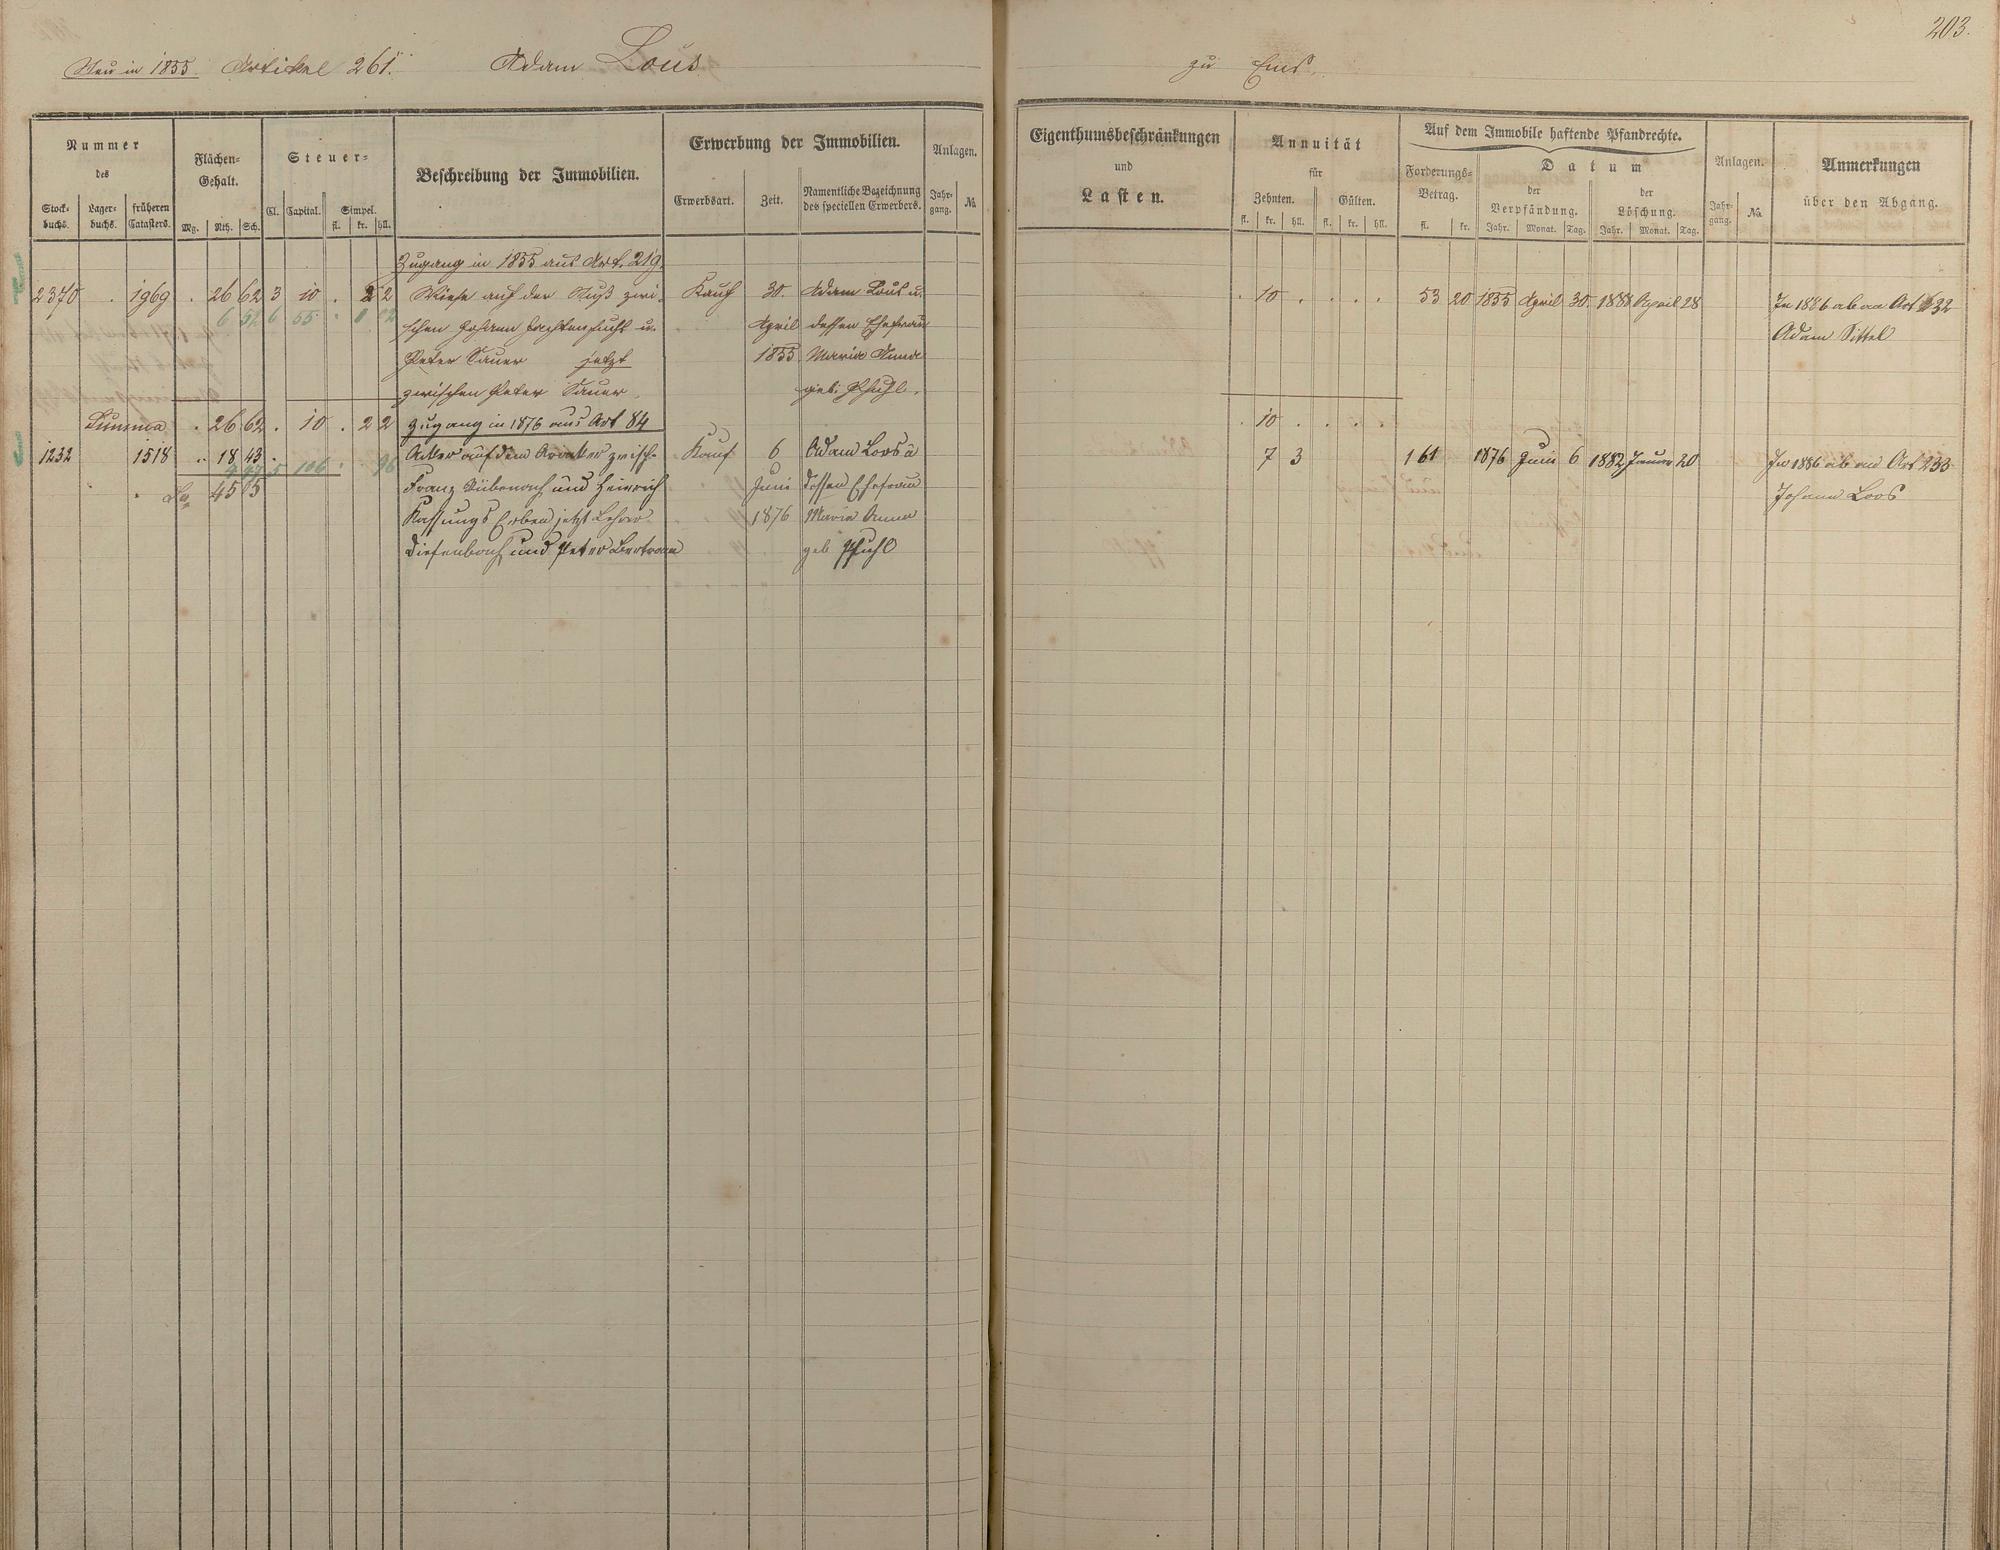 203.
Neu in 1855. Artikel 261. Adam Loos zu Ems.
Nummer des
Stock-buchs. Lager-buchs. früheren Catasters.
Flächen-Gehalt.
Mg. Rth. Sch.
Steuer-
Cl. Capital. Simpel.
fl. kr. hll.
Beschreibung der Immobilien.
Erwerbung der Immobilien.
Erwerbsart. Zeit. Namentliche Bezeichnung des speciellen Erwerbers.
Anlagen.
Jahr-gang. No.
Eigenthumsbeschränkungen
und
Lasten.
Annuität
für
Zehnten. Gülten.
fl. kr. hll. fl. kr. hll.
Auf dem Immobile haftende Pfandrechte.
Forderungs-Betrag.
fl. kr.
Datum
der Verpfändung. der Löschung.
Jahr. Monat. Tag. Jahr. Monat. Tag.
Anlagen.
Jahr-gang. No.
Anmerkungen
über den Abgang.
Zugang in 1855 aus Art. 219.
2370 . 1969 . 26 62 3 10 . 2 2 Wiese auf der zwi- Kauf 30. Adam Loos u. . 10 . . . . 53 20 1855 April 30. 1888 April 28 In 1886 ab an Art 632
6 52 6 55 schen Johann u. April dessen Ehefrau Adam Sittel
Peter Sauer jetzt 1855 Maria Anna
zwischen Peter Sauer. geb. Pfuhl.
Summa . 26 62 . 10 . 2 2 Zugang in 1876 aus Art 84 . 10 . . .
1232 1518 .. 18 43 . Acker auf dem zwisch. Kauf 6 Adam Loos u 7 3 161 1876 Juni 6 1882 Januar 20 In 1886 ab an Art 233
5 106 96
Sa 45 5 Franz und Heinrich Juni dessen Ehefrau Johann Loos
Erben jetzt Lehrer 1876 Maria Anna
Diefenbach und Peter Bertram geb Pfuhl